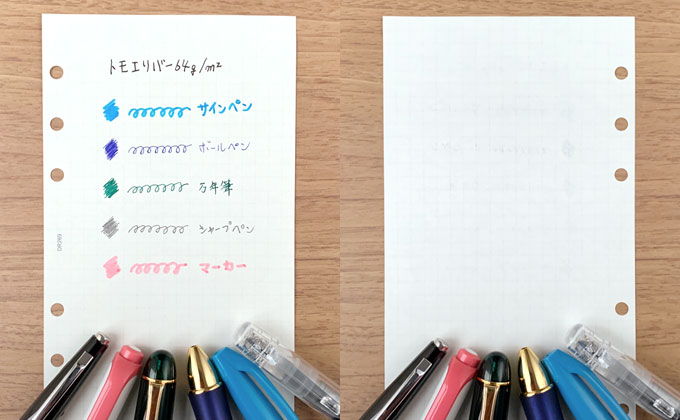 トモエリバー64g/m²
サインペン
ボールペン
万年筆
シャープペン
マーカー